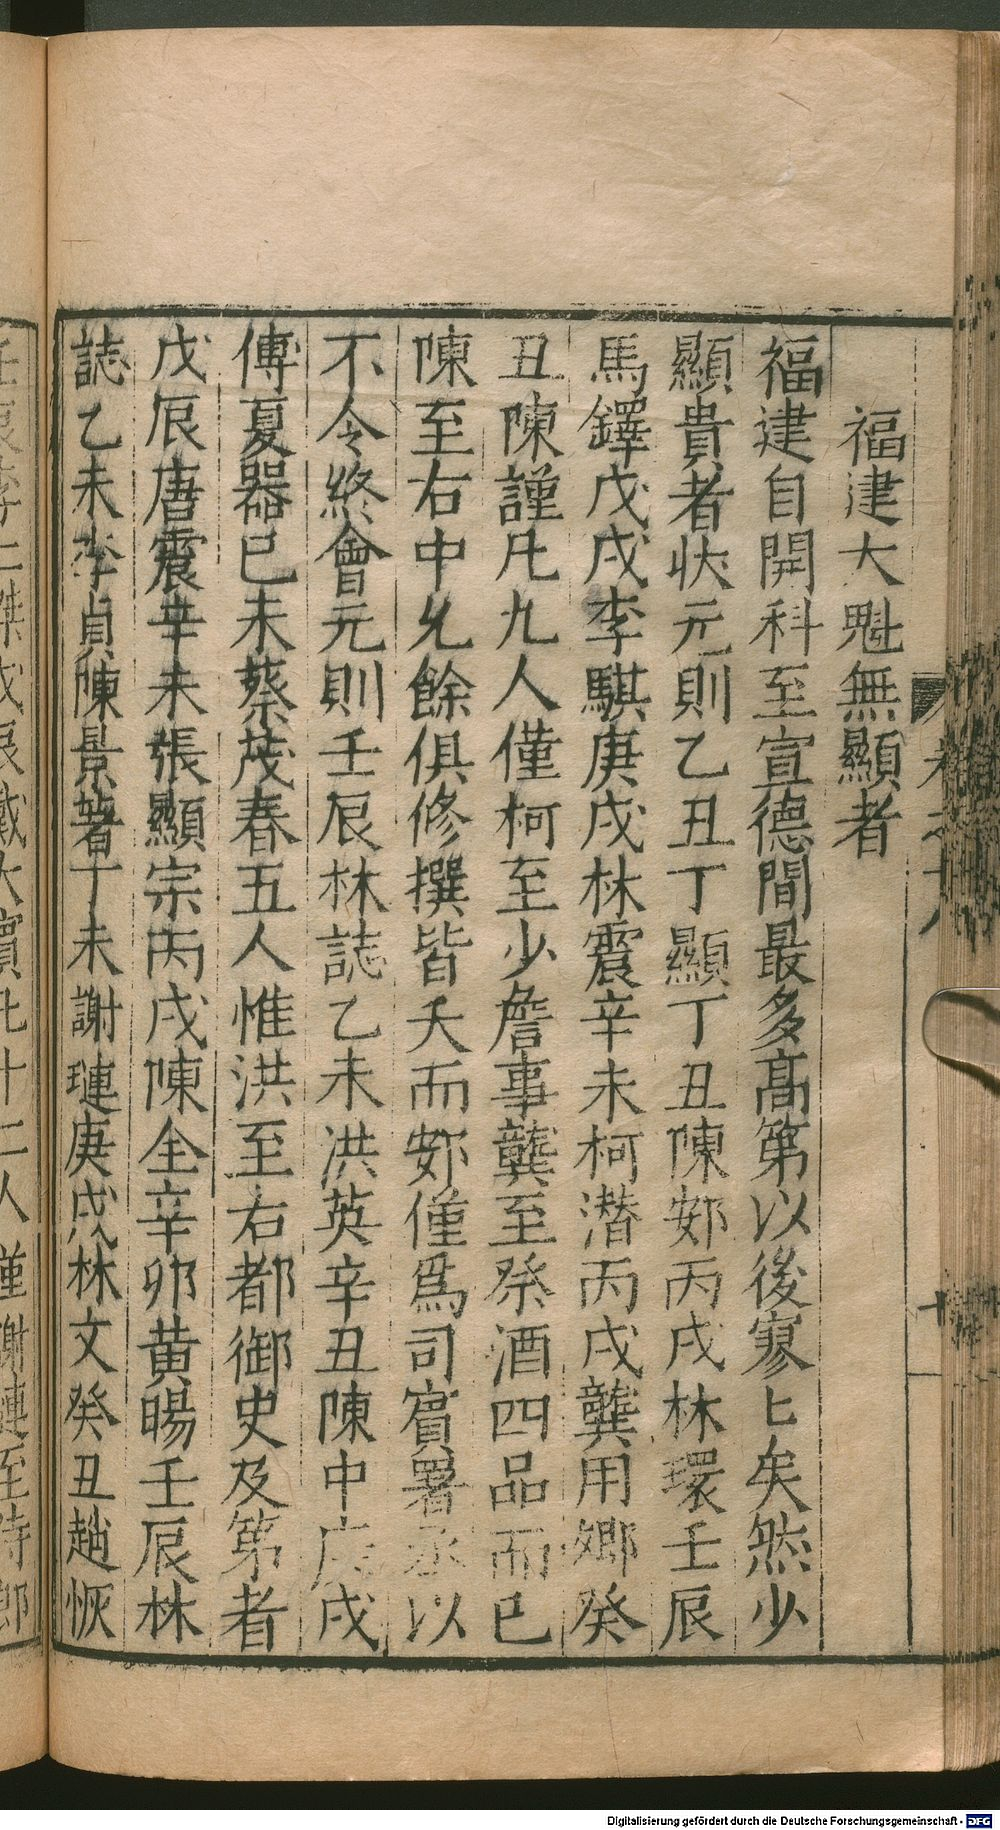 福建大魁無顯者
福建自開科至宣德間最多高第以後寥匕矣然少
顯貴者狀元則乙丑丁顯丁丑陳䢿丙戌林環壬辰
馬鐸戊戌李騏庚戌林震辛未柯潛丙戌龔用卿癸
丑陳謹凡九人僅柯至少詹事龔至祭酒四品而已
陳至右中允餘俱修撰皆夭而䢿僅爲司賓署丞以
不令終會元則壬辰林誌乙未洪英辛丑陳中庚戌
傅夏器己未蔡茂春五人惟洪至右都御史及第者
戊辰唐震辛未張顯宗丙戌陳全辛卯黃暘壬辰林
誌乙未李貞陳景著丁未謝璉庚戌林文癸丑趙恢
Digitalisierung gefördert durch die Deutsche Forschungsgemeinschaft - DFG